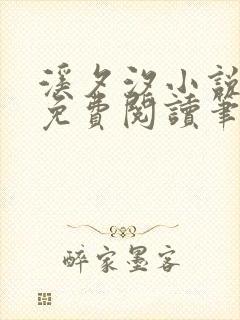 溪夕汐小說
免費閱讀筆
醉家墨客